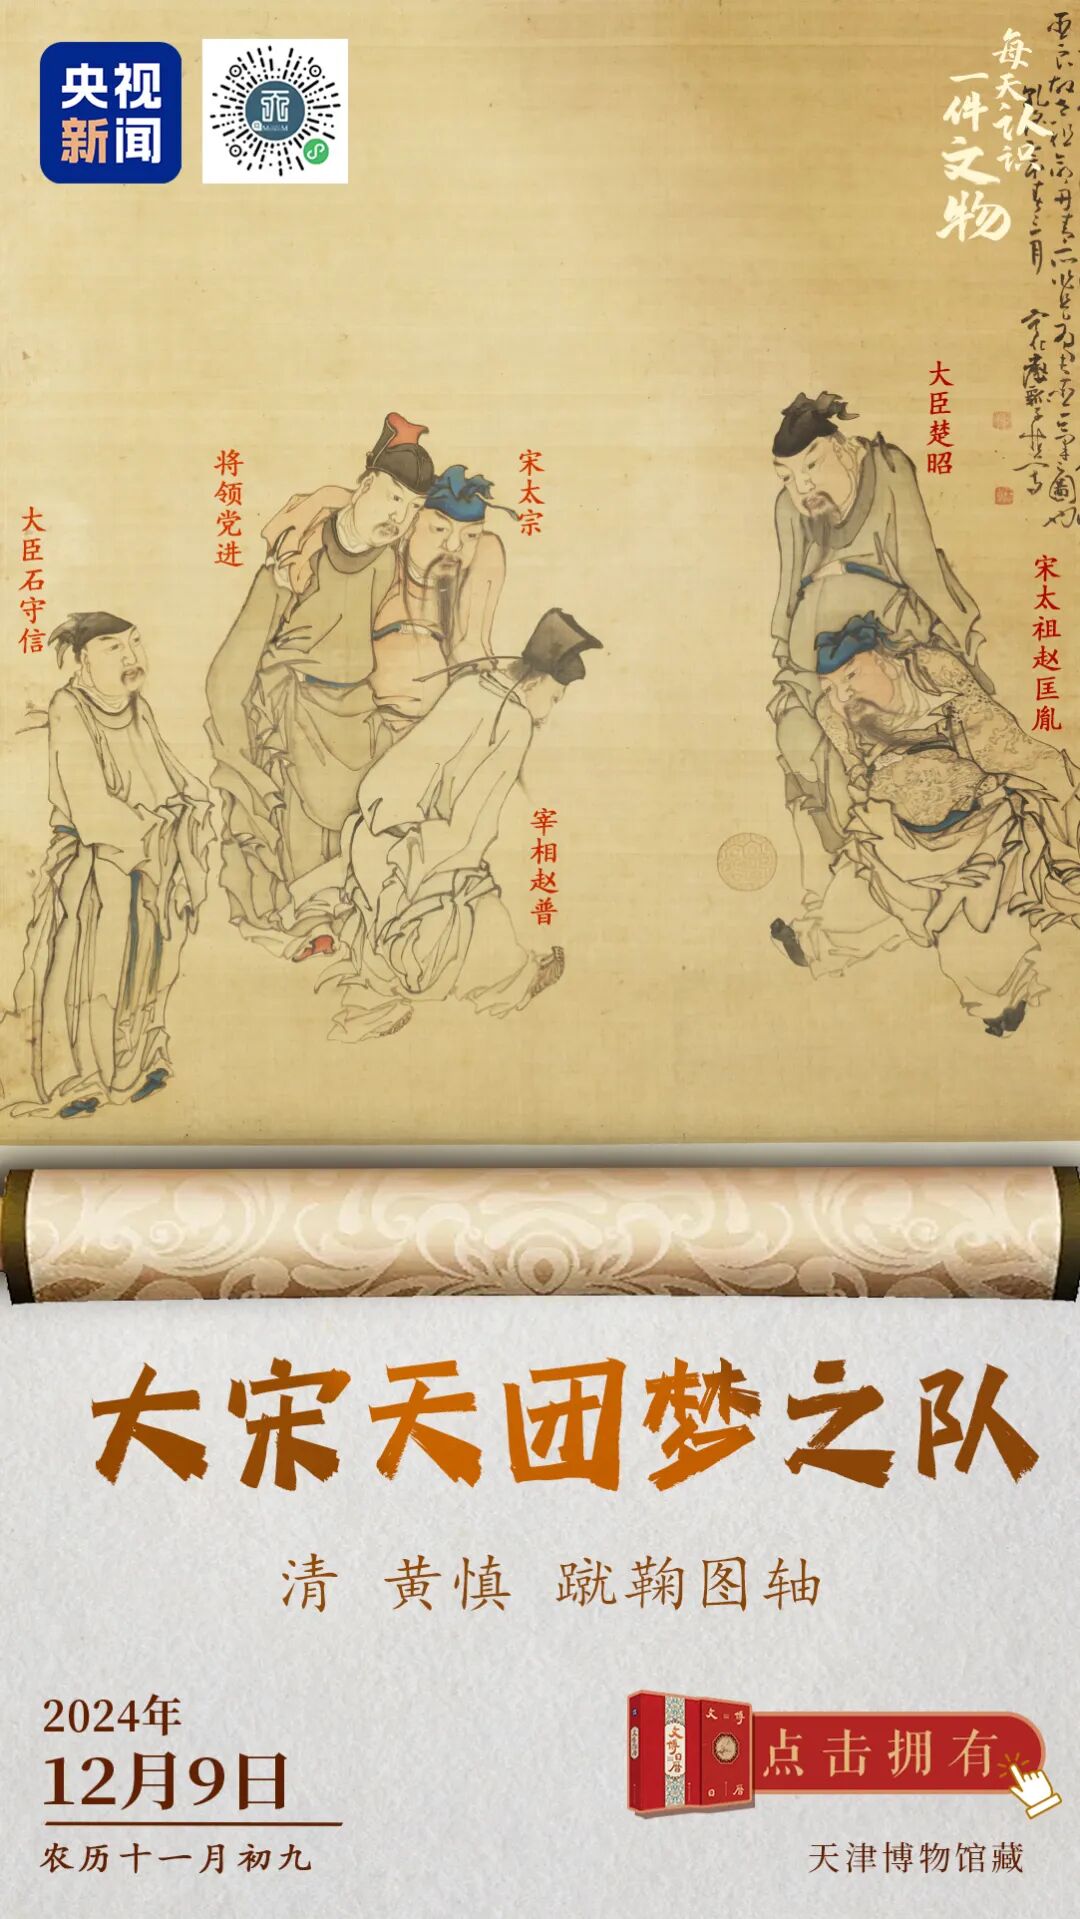 央视
新闻
每天认识
一件文物
大臣楚昭
宋太祖赵匡胤
宋太宗
将领党进
大臣石守信
宰相赵普
大宋天团梦之队
清 黄慎 蹴鞠图轴
2024年
12月9日
农历十一月初九
文博日历
点击拥有
天津博物馆藏